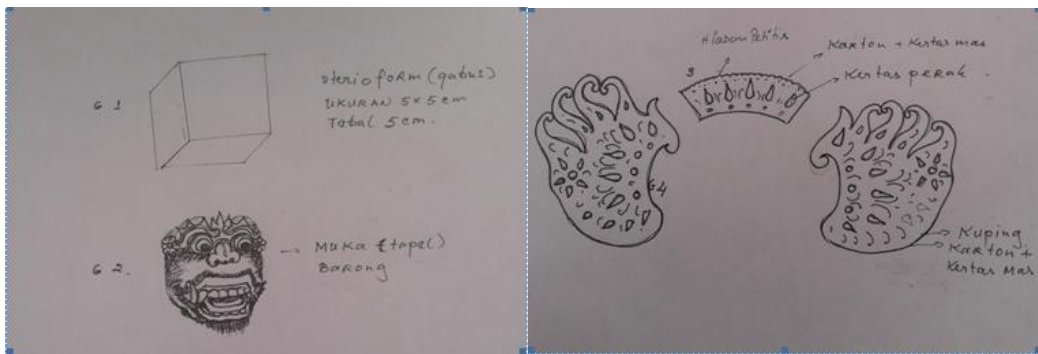 G 1
sterioform (gabus)
UKURAN 5x5cm
Tebal 5cm.
G 2.
MUKA (tapel)
BaRong
Petitis
3
Karton + Kertas mas
Kertas perak
G4
Kuping
Karton +
Kertas mas